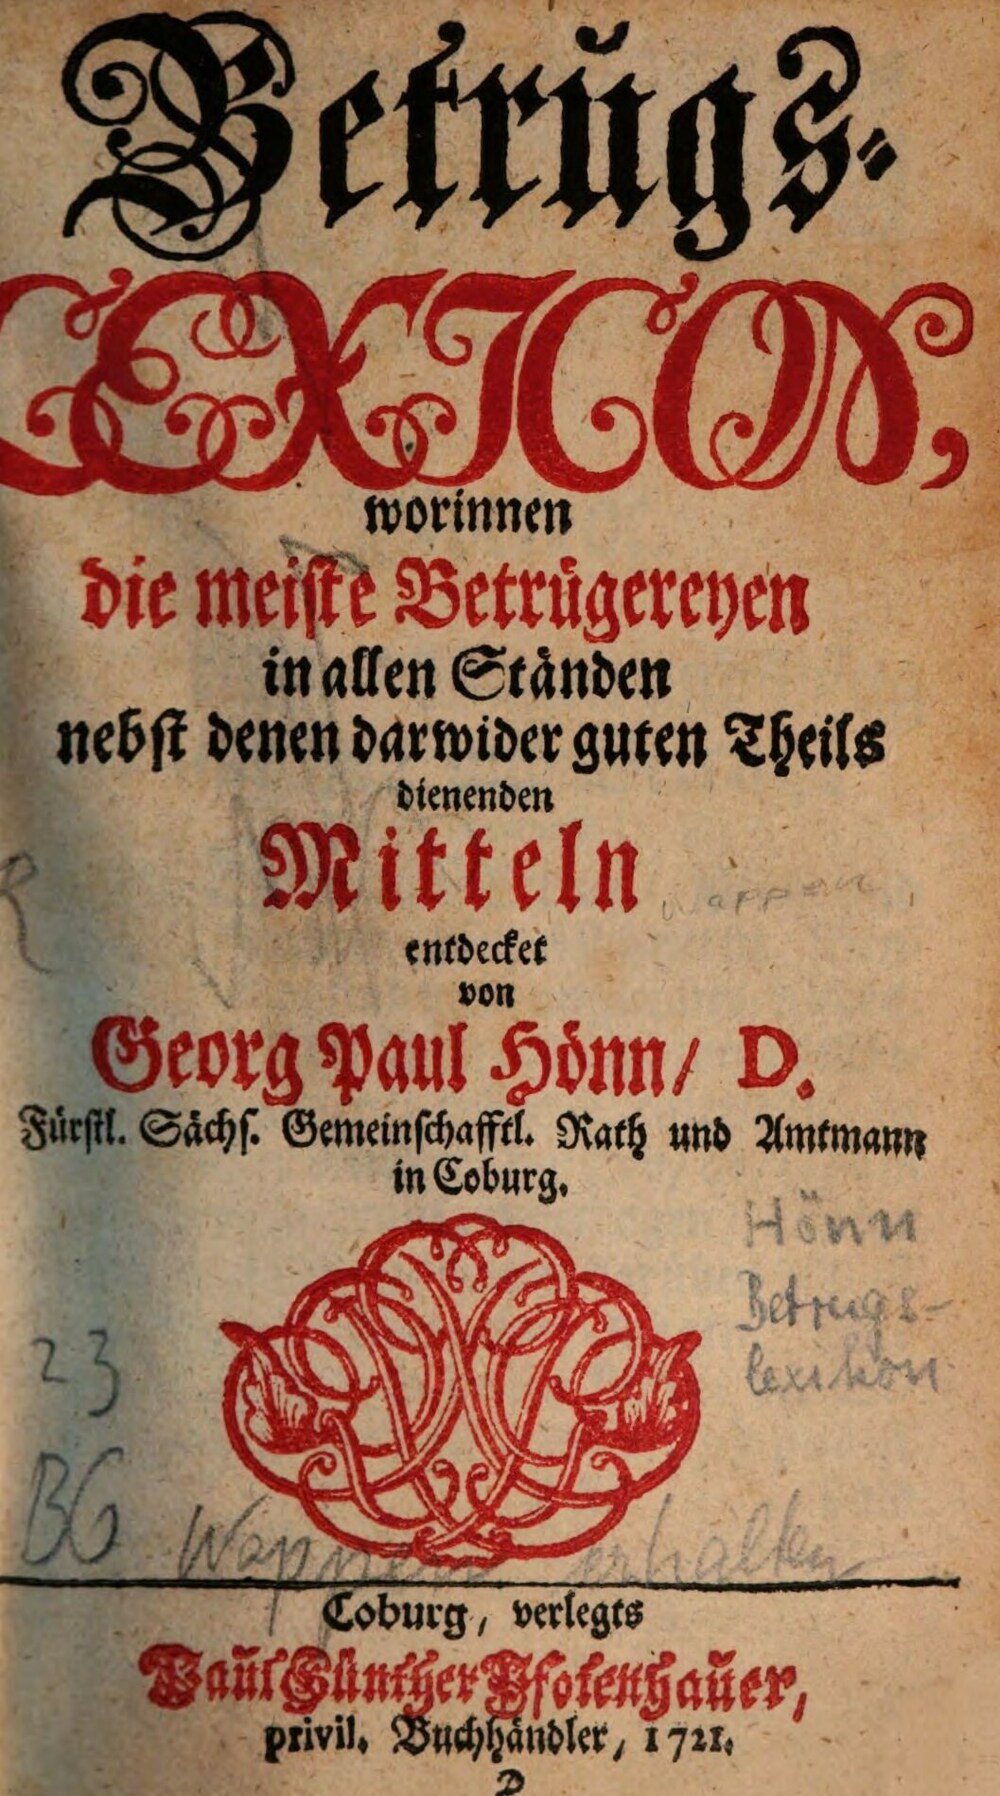 Betrugs-
LEXICON,
worinnen
die meiste Betrügereyen
in allen Ständen
nebst denen darwider guten Theils
dienenden
Mitteln
entdecket
von
Georg Paul Hönn/ D.
Fürstl. Sächs. Gemeinschafftl. Rath und Amtmann
in Coburg.
Hönn
Betrugs-
lexikon
23
BG
Wappen erhalten
Coburg, verlegts
Paul Günther Pfotenhauer,
privil. Buchhändler, 1721.